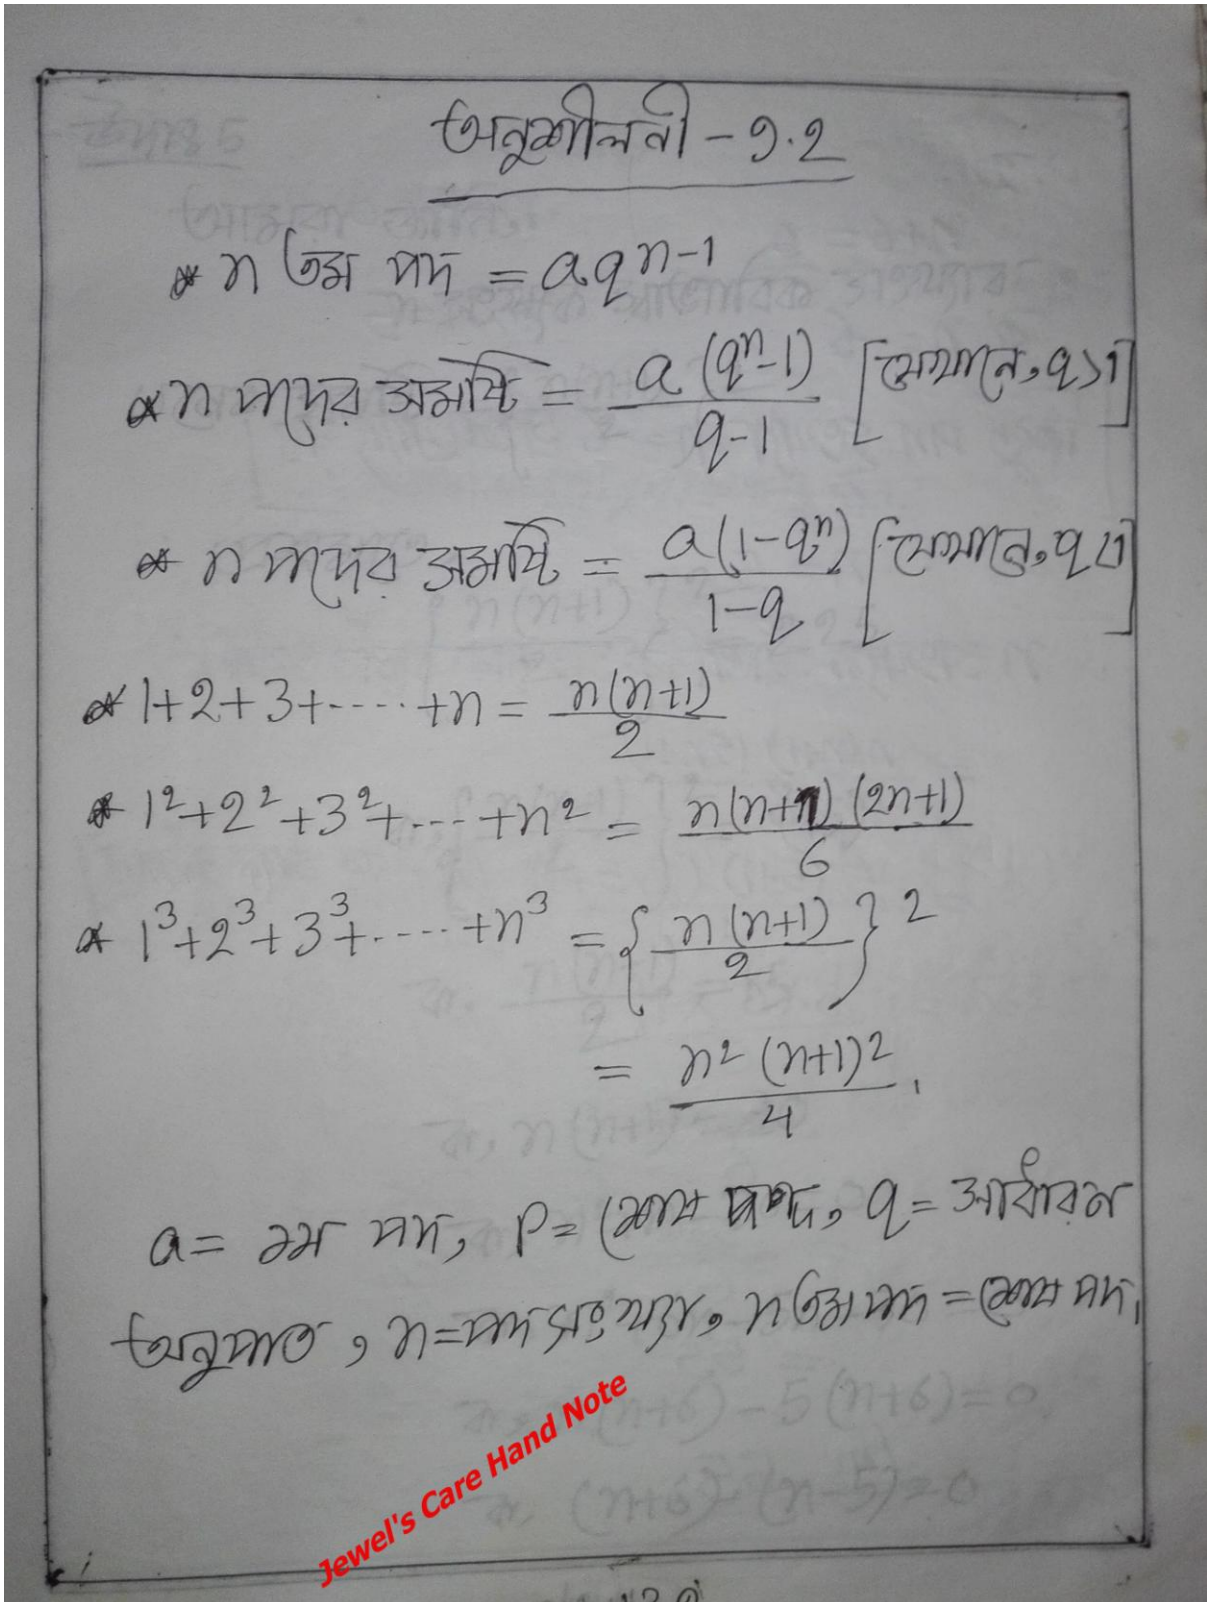 অনুশীলনী - ৭.২
* n তম পদ = aq^{n-1}
* n পদের সমষ্টি = \frac{a(q^n-1)}{q-1} [যেখানে, q>১]
* n পদের সমষ্টি = \frac{a(1-q^n)}{1-q} [যেখানে, q<১]
* 1+2+3+----+n = \frac{n(n+1)}{2}
* 1²+2²+3²+---+n² = \frac{n(n+1)(2n+1)}{6}
* 1³+2³+3³+----+n³ = {\frac{n(n+1)}{2}}²
= \frac{n²(n+1)²}{4}.
a = ১ম পদ, P = শেষ পদ, q = সাধারন
অনুপাত, n = পদ সংখ্যা, n তম পদ = শেষ পদ,
Jewel's Care Hand Note